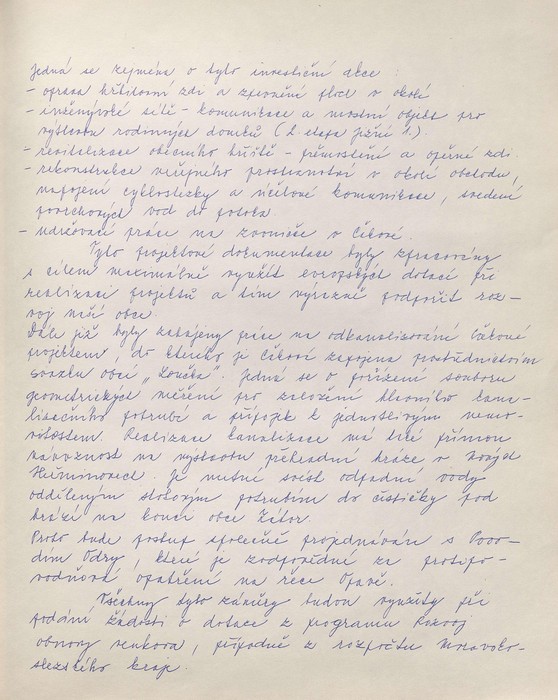 Jedná se zejména o tyto investiční akce :
- oprava hřbitovní zdi a zpevnění ploch v okolí
- inženýrské sítě - komunikace a mostní objekt pro
výstavbu rodinných domků (2. etapa jižní 1.).
- revitalizace obecního hřiště - přemostění a opěrné zdi
- rekonstrukce veřejného prostranství v okolí obchodu,
napojení cyklostezky a účelové komunikace, svedení
povrchových vod do potoka
- udržovací práce na zvonici v Čákové.
Tyto projektové dokumentace byly zpracovány
s cílem maximálně využít evropských dotací při
realizaci projektů a tím výrazně podpořit roz-
voj naší obce.
Dále již byly zahájeny práce na odkanalizování Čákové
projektem, do kterého je Čáková zapojena prostřednictvím
svazku obcí „Loučka". Jedná se o pořízení souboru
geometrických měření pro založení hlavního kana-
lizačního potrubí a přípojek k jednotlivým nemo-
vitostem. Realizace kanalizace má též přímou
návaznost na výstavbu přehradní hráze v Nových
Heřminovech. Je nutné svést odpadní vody
odděleným stokovým potrubím do čističky pod
hrází na konci obce Zátor.
Proto bude postup společně projednáván s Povo-
dím Odry, které je zodpovědné za protipo-
vodňová opatření na řece Opavě.
Všechny tyto záměry budou využity při
podání žádosti o dotace z programu Rozvoj
obnovy venkova, případně z rozpočtu Moravsko-
slezského kraje.